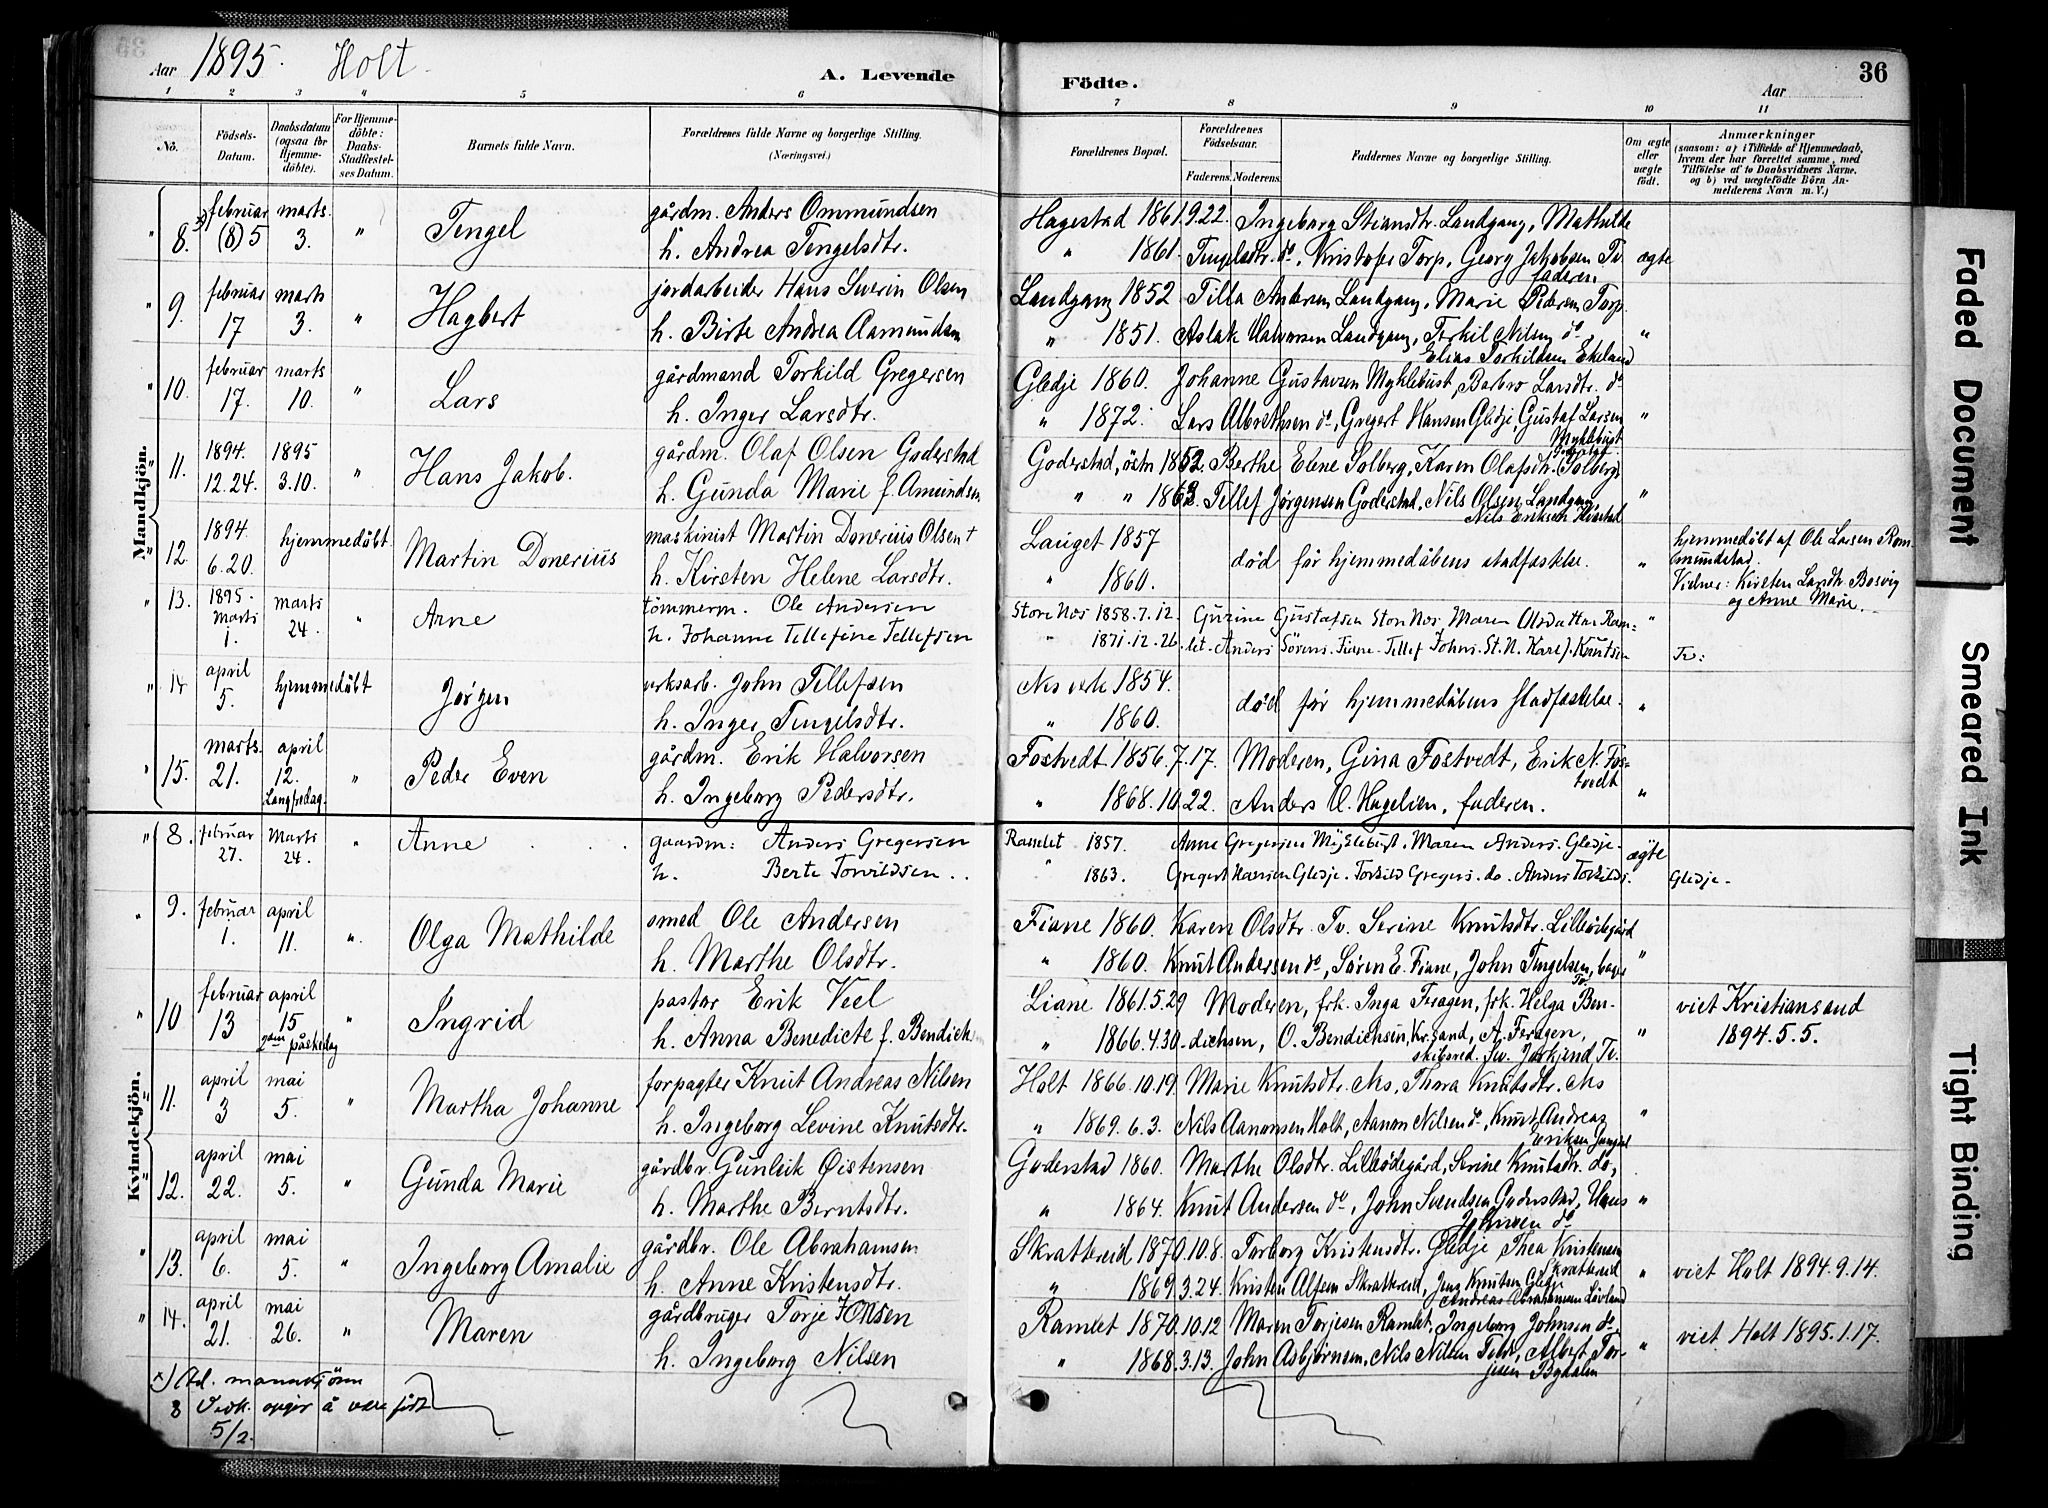 Aar 1895. Holt.
A. Levende Födte.
Aar
36
1 2 3 4 5 6 7 8 9 10 11
No.
Födsels-Datum.
Daabsdatum (ogsaa for Hjemmedöbte).
For Hjemmedöbte: Daabs-Stadfæstelses Datum.
Barnets fulde Navn.
Forældrenes fulde Navne og borgerlige Stilling. (Næringsvei.)
Forældrenes Bopæl.
Forældrenes Födselsaar.
Faderens. Moderens.
Faddernes Navne og borgerlige Stilling.
Om ægte eller uægte födt.
Anmærkninger
(saasom: a) i Tilfælde af Hjemmedaab, hvem der har forrettet samme, med Tilföielse af to Daabsvidners Navne, og b) ved uægtefödte Börn Anmelderens Navn m. V.)
Mandkjön.
" 8. x) februar marts. Tengel gårdm. Anders Ommundsen Hagestad 1861.9.22. Ingeborg Stiansdtr. Landgang, Mathilde
(8) 5 3. " h. Andrea Tengelsdtr. " 1861. Tengelsdtr. do, Kristofer Torp, Georg Jakobsen Tv ægte
faderen
" 9. februar marts Hagbert jordarbeider Hans Sverin Olsen Landgang 1852 Tilla Andersen Landgang, Marie Pedersen Torp
17 3. " h. Birte Andrea Aamundsen " 1851. Aslak Halvorsen Landgang, Terkil Nilsen do "
Elias Torkildsen Ekeland
" 10. februar marts Lars gårdmand Torkild Gregersen Gledje 1860. Johanne Gustavsen Myklebust, Barbro Larsdtr. do
17. 10. " h. Inger Larsdtr. " 1872. Lars Albrethsen do, Gregert Hansen Gledje, Gustaf Larsen "
Myklebust
" 11. 1894. 1895 Hans Jakob. gårdm. Olaf Olsen Goderstad Goderstad, östr 1852 Berthe Elene Solberg, Karen Olafsdtr. Solberg
12.24. 3.10. " h. Gunda Marie f. Amundsen " " 1863 Tellef Jørgensen Goderstad, Nils Olsen Landgang "
Nils Eriksen
12. 1894 hjemmedöbt Martin Donerius maskinist Martin Donerius Olsen † Lauget 1857 död för hjemmedåbens stadfæstelse. " hjemmedöbt af Ole Larsen Rommundstad.
6.20. h. Kirsten Helene Larsdtr. " 1860. Vidner: Kirsten Larsdtr. Bosvig og Anne Marie.
" 13. 1895. marts Arne tømmerm. Ole Andersen Store Nos 1858.7.12. Gurine Gustafsen Store Nos, Maren Olsdatter Ram= "
Marts 1. 24. " h. Johanne Tellefine Tellefsen " 1871.12.26. let. Anders Sörens. Fiane. Tellef Johns. St. N. Karl J. Knutsen Tv:
" 14 april hjemmedöbt Jørgen verksarb. John Tellefsen Nes verk 1854. död för hjemmedåbens stadfæstelse. "
5. h. Inger Tengelsdtr. " 1860.
" 15. marts. april Peder Even gårdm. Erik Halvorsen Fostvedt 1856.7.17. Moderen, Gina Fostvedt, Erik N. Fostvedt
21. 12. Langfredag. " h. Ingeborg Pedersdtr. " 1868.10.22. Anders O. Hagelien, faderen. "
Kvindekjön.
" 8. februar Marts Anne gaardm: Anders Gregersen Rasselet 1857. Anne Gregersen Myklebust. Maren Anders. Gledje.
27. 24. " h. Berte Torkildsen " 1863. Gregert Hansen Gledje. Torkild Gregers. do. Anders Torkilds. ægte Gledje.
" 9. februar april Olga Mathilde smed Ole Andersen Fiane 1860. Karen Olsdtr. Tv. Serine Knutsdtr. Lilleödegård
1. 11. " h. Marthe Olsdtr. " 1860. Knut Andersen do, Sören E. Fiane, John Tengelsen, bager "
Tv.
" 10 februar april Ingrid pastor Erik Veel Liane 1861.5.29 Moderen, frk. Inga Feragen, frk. Helga Ben- viet Kristiansand
13 15 2den påskedag " h. Anna Benedicte f. Bendich " 1866.4.30. dichsen, O. Bendichsen, Kr.sand, A. Feragen, " 1894.5.5.
skibsred. Tv.
11. april mai Martha Johanne forpagter Knut Andreas Nilsen Holt 1866.10.19. Marie Knutsdtr. Nes, Thora Knutsdtr. Nes
3 5. " h. Ingeborg Levine Knutsdtr. " 1869.6.3. Nils Aanonsen Holt, Aanon Nilsen do, Knut Andreas "
Eriksen
12. april mai Gunda Marie gårdbr. Gunleik Øistensen Goderstad 1860. Marthe Olsdtr. Lilleödegård, Serine Knutsdtr. do,
22. 5. " h. Marthe Berntsdtr. " 1864. Knut Andersen do, John Svendsen Goderstad, Hans "
Johnsen do
" 13. april mai Ingeborg Amalie gårdbr. Ole Abrahamsen Skrattereid 1870.10.8. Torborg Kristensdtr. Gledje Thea Kristensen
Skrattereid
6. 5. " h. Anne Kristensdtr. " 1869.3.24. Kristen Alfsen Skrattereid, Jens Knutsen Gledje " viet Holt 1894.9.14.
Andreas Abrahamsen Lövland
" 14. april mai Maren gårdbruger Torje Jonsen Ramlet 1870.10.12 Maren Torjesen Ramlet, Ingeborg Johnsen do,
21. 26. " h. Ingeborg Nilsen " 1868.3.13. John Asbjørnsen, Nils Nilsen, Albert Tor- " viet Holt 1895.1.17.
jesen Bygdalen
x) Ad. mannkjönn
8 Vedk. opgir å være född
5/2.
Faded Document
Smeared Ink
Tight Binding